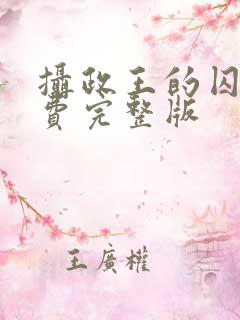 攝政王的囚
費完整版
王廣權